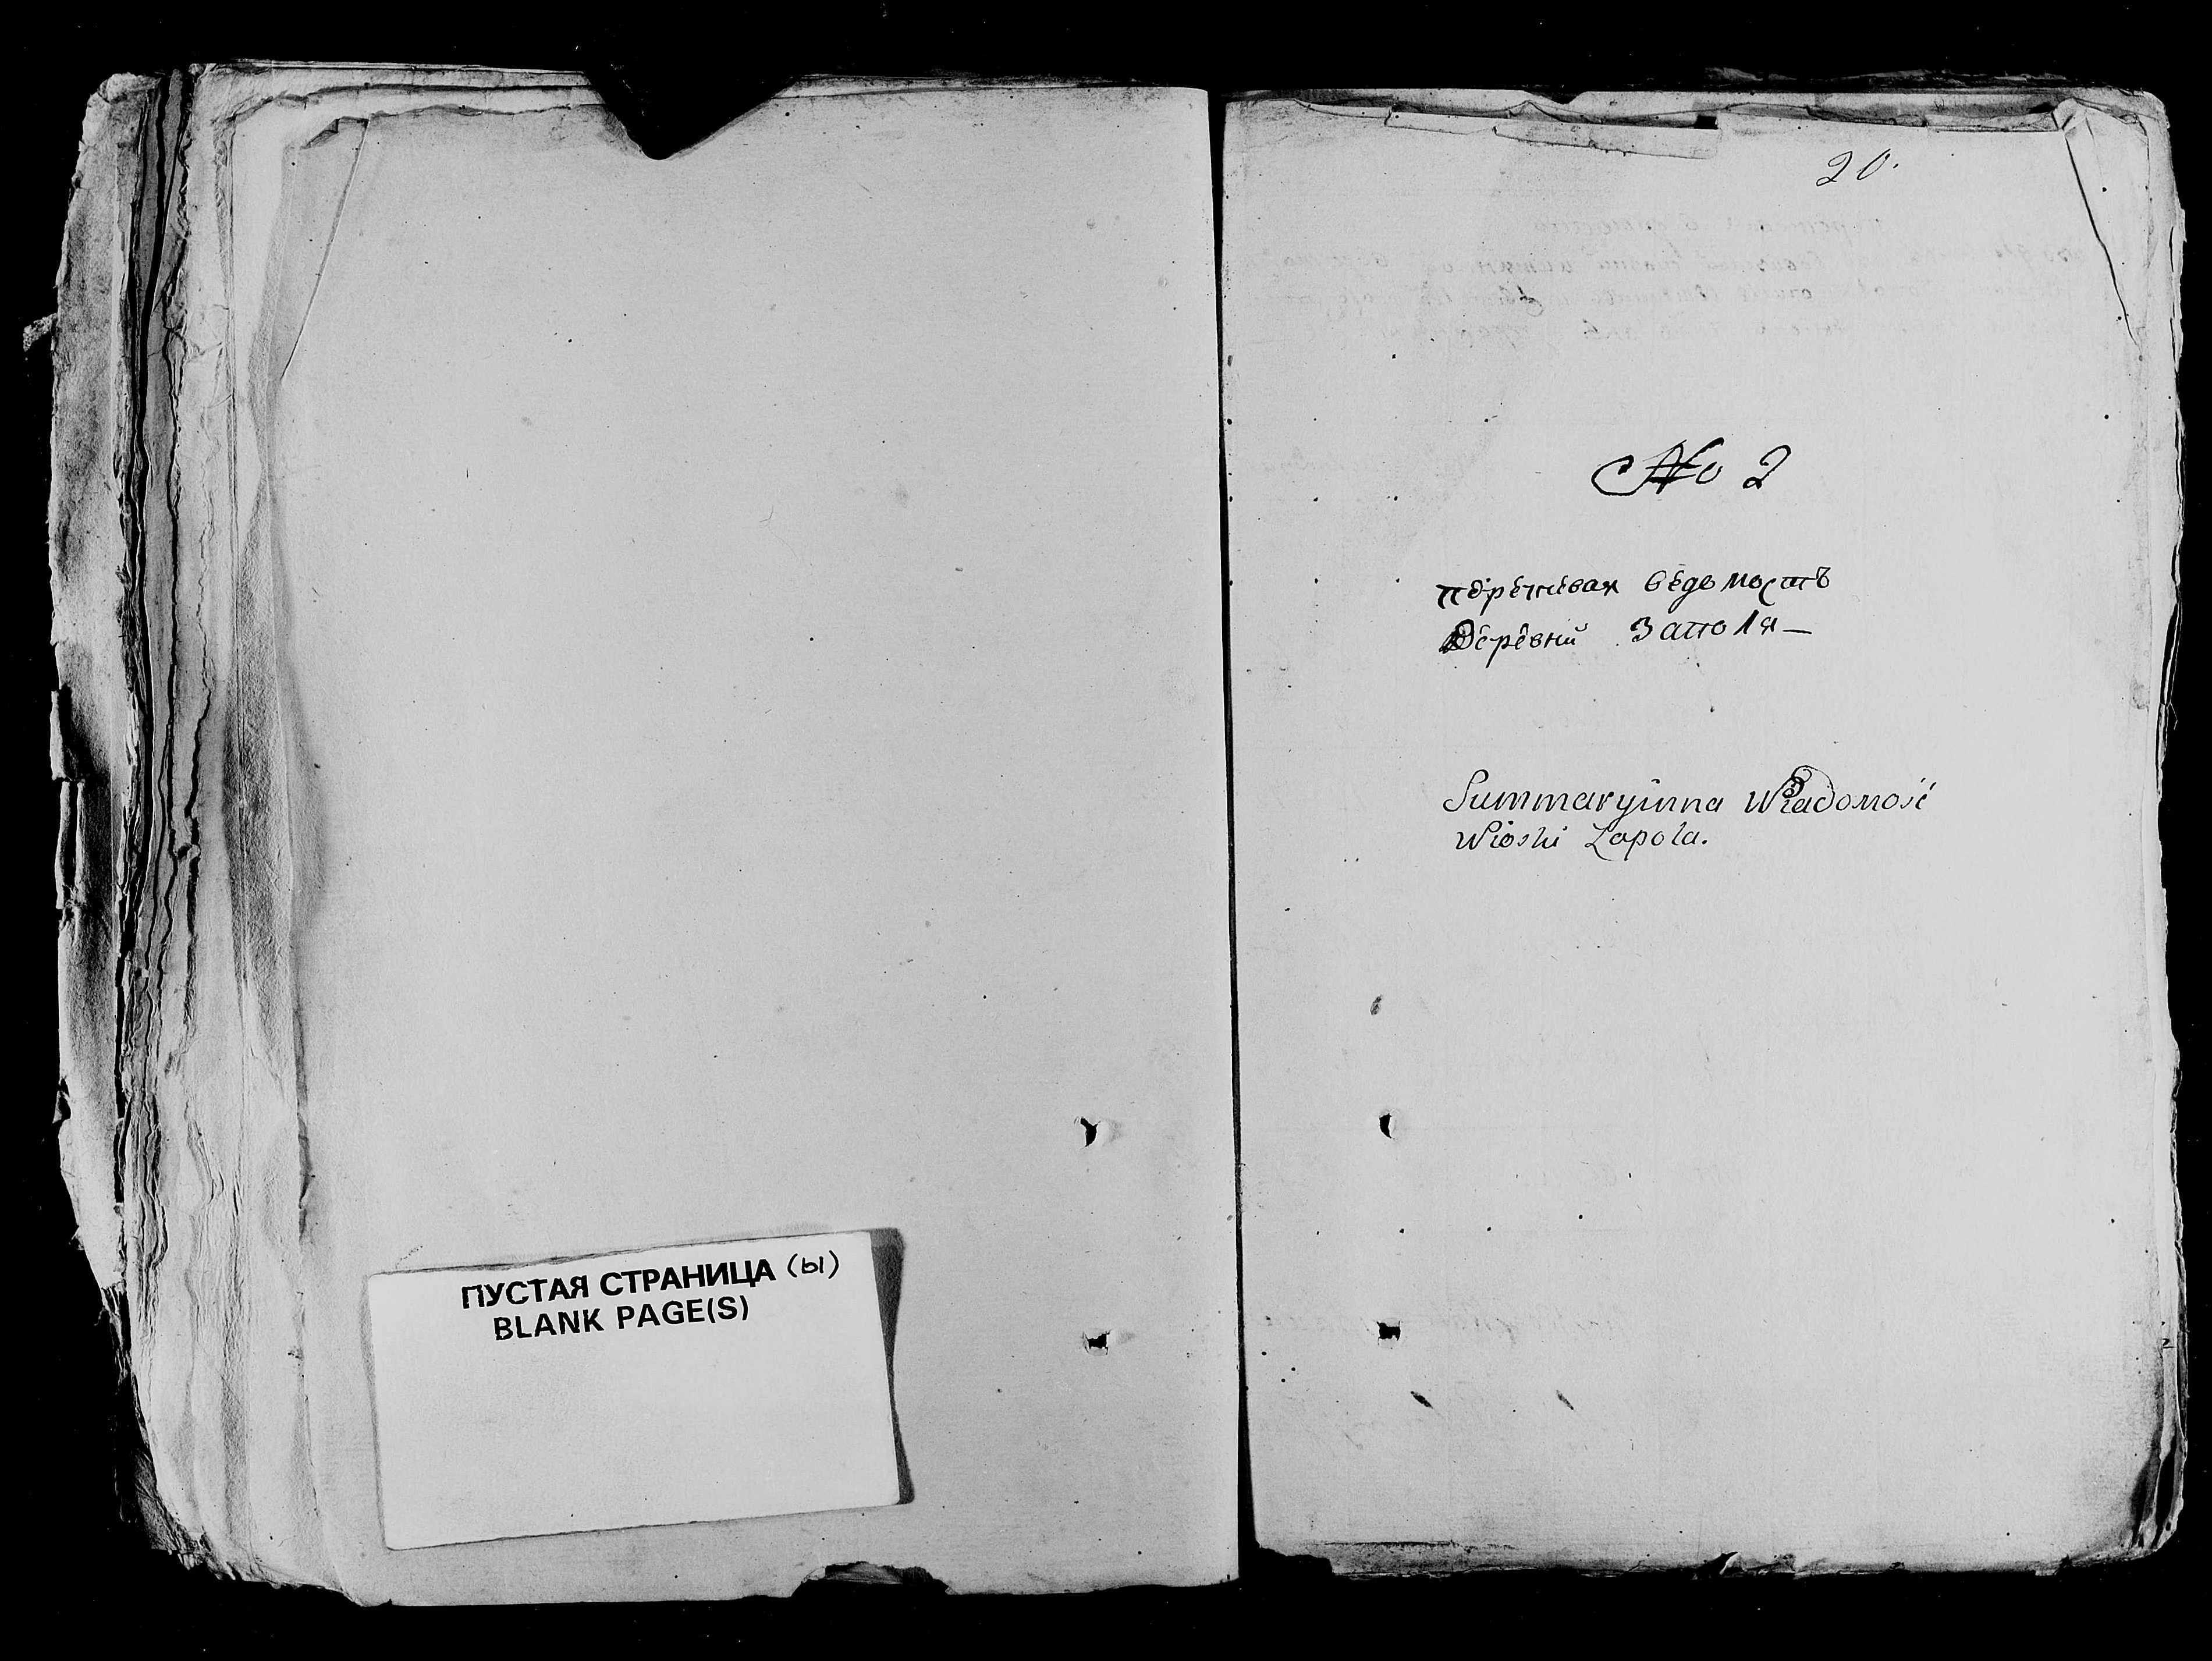 ПУСТАЯ СТРАНИЦА (Ы)
BLANK PAGE(S)
20.
No 2
перечневая ведомость
Деревни Заполя
Summaryinna Wiadomość
Wioski Zapola.